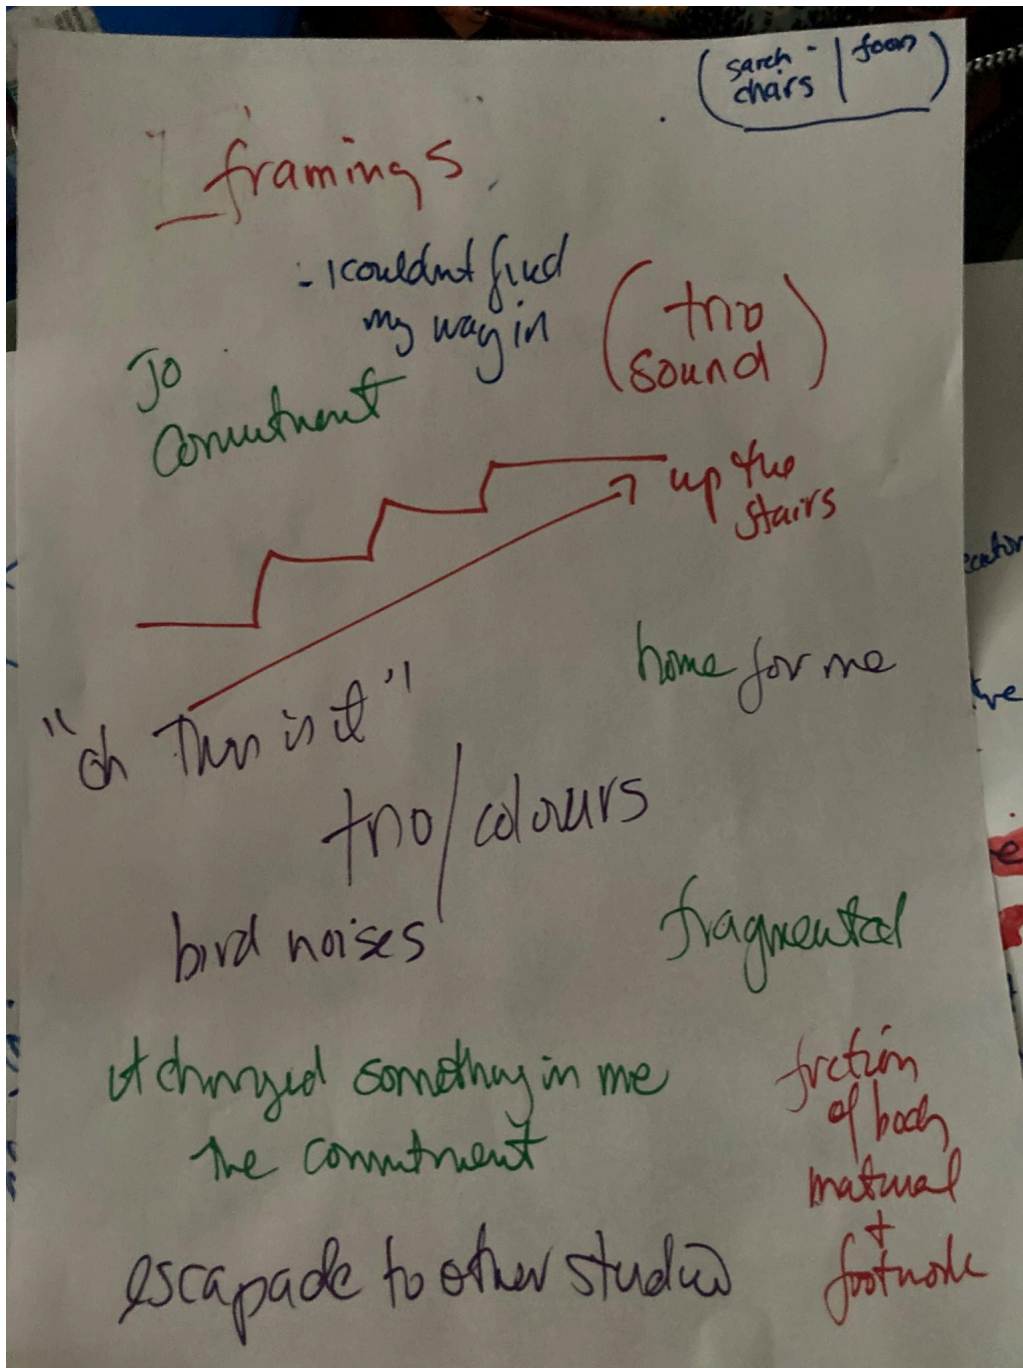 (sarah - | foan)
chairs
_framings
- I couldnt find
my way in
(trio
sound)
Jo
Commitment
up the
stairs
home for me
"oh This is it"
trio/colours
bird noises
fragmental
it changed something in me
the commitment
friction
of body
material
+
footnote
escapade to other studio